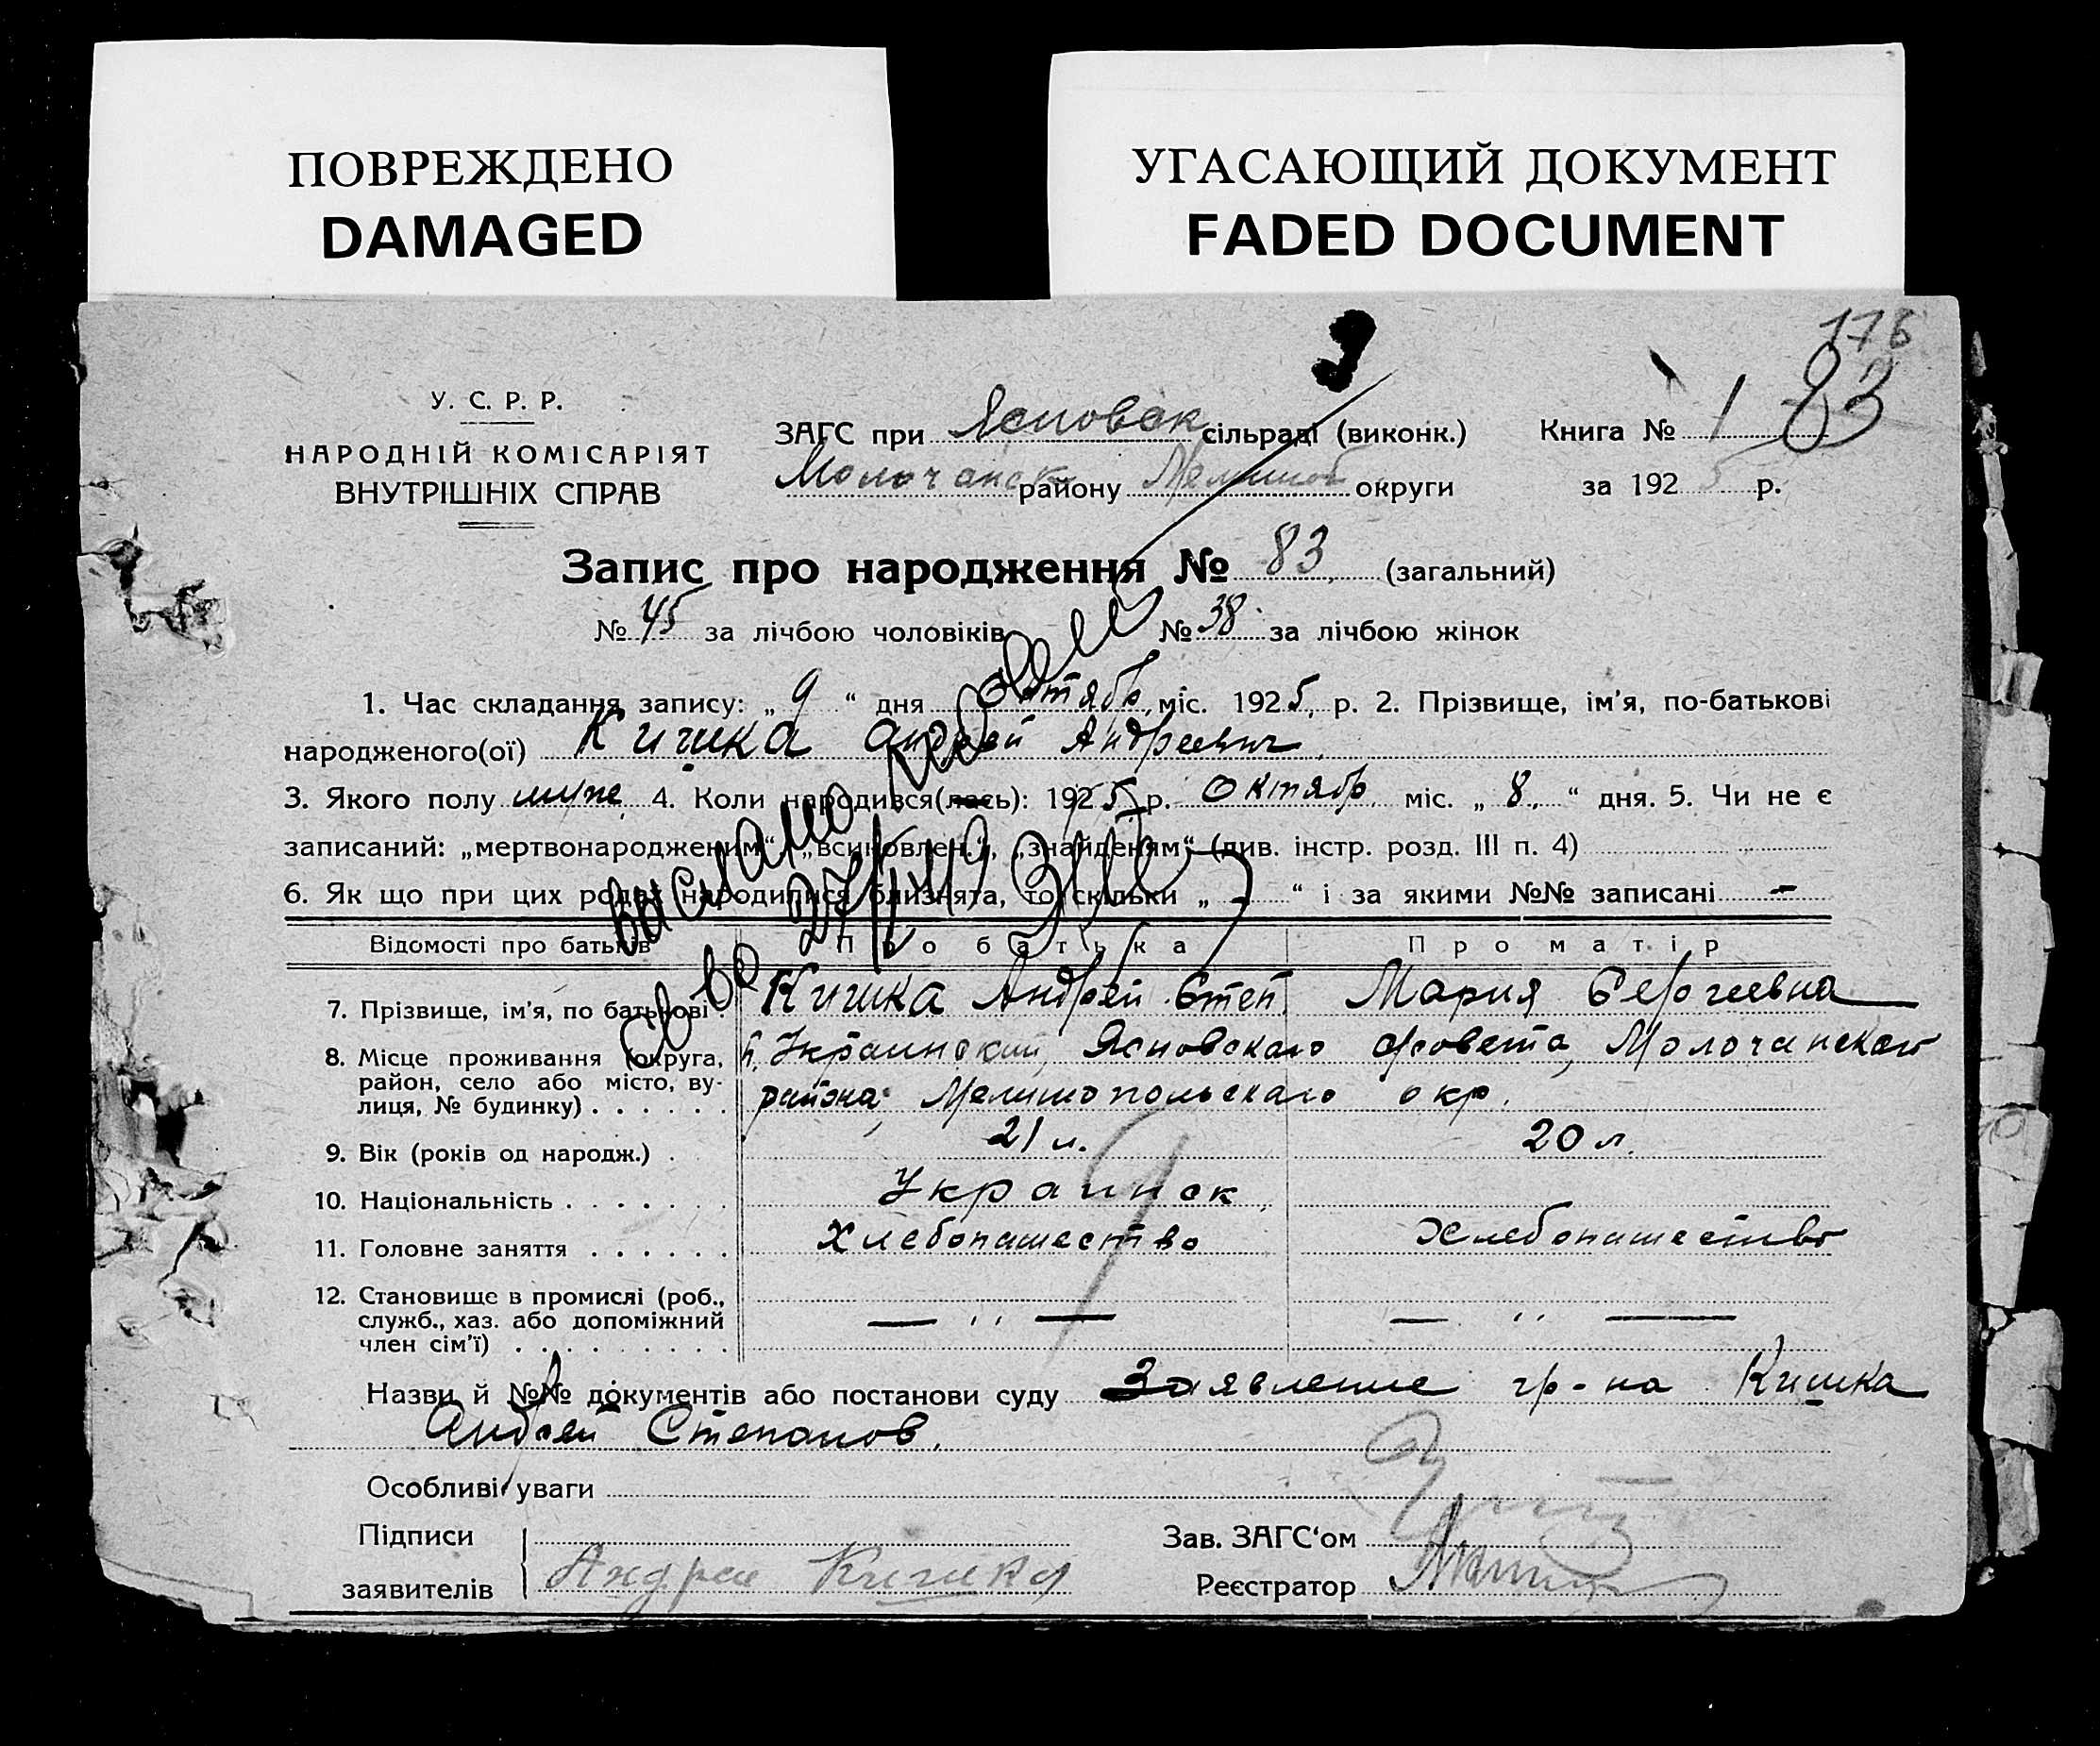 ПОВРЕЖДЕНО
DAMAGED
УГАСАЮЩИЙ ДОКУМЕНТ
FADED DOCUMENT
176
83
У. С. Р. Р.
НАРОДНІЙ КОМІСАРІЯТ
ВНУТРІШНІХ СПРАВ
ЗАГС при Ясновск сільраді (виконк.)
Молочанск району Мелитоп округи
Книга № 1
за 1925 р.
Запис про народження № 83 (загальний)
№ 45 за лічбою чоловіків № 38 за лічбою жінок
1. Час складання запису: „ 9 “ дня октябр міс. 1925 р. 2. Прізвище, ім'я, по-батькові
народженого(ої) Кишка Андрей Андреевич
3. Якого полу муже 4. Коли народився(лась): 1925 р. Октябр міс. „ 8 “ дня. 5. Чи не є
записаний: „мертвонародженим“, „всиновлен.“, „знайденим“ (див. інстр. розд. III п. 4)
6. Як що при цих родах народилися близнята, то скільки „ - “ і за якими №№ записані -
Відомості про батьків Про батька Про матір
7. Прізвище, ім'я, по батькові. Кишка Андрей Степ Мария Сергеевна
8. Місце проживання (округа, район, село або місто, вулиця, № будинку) Украинский, Ясновскаго с/совета, Молочанскаго
района Мелитопольскаго окр.
9. Вік (років од народж.) . 21 л. 20 л.
10. Національність . . . . . . . Украинск
11. Головне заняття . . . . . . Хлебопашество Хлебопашество
12. Становище в промислі (роб., служб., хаз. або допоміжний член сім'ї) . . . . . . . . . — ,, — — ,, —
Назви й №№ документів або постанови суду Заявление гр-на Кишка
Андрей Степанов.
Особливі уваги
Підписи
заявителів Андрей Кишка
Зав. ЗАГС'ом
Реєстратор
выслано
св во 27/